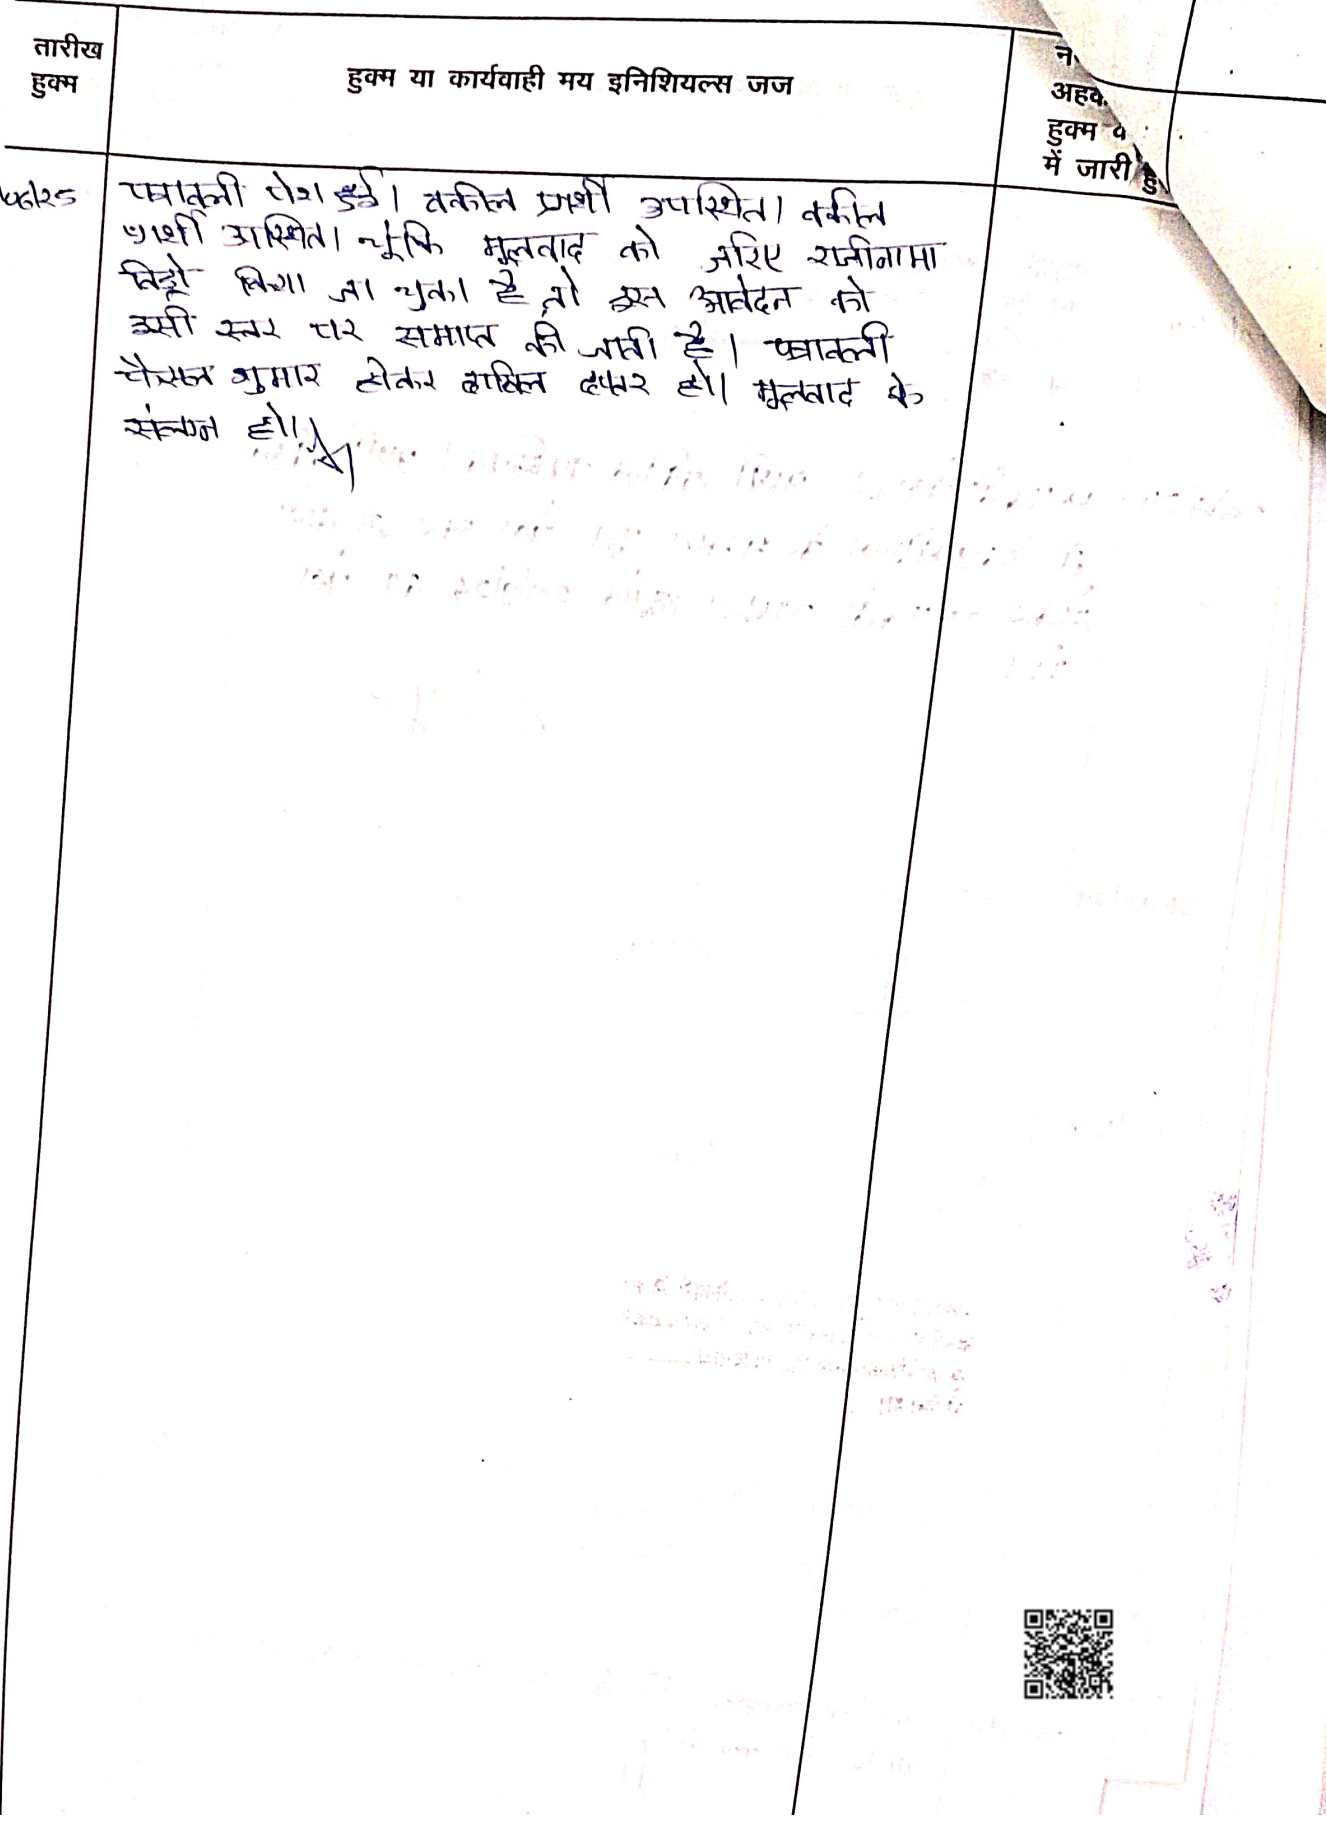 तारीख
हुक्म
हुक्म या कार्यवाही मय इनिशियल्स जज
अहव
हुक्म
में जारी
पत्रावली पेश हुई। वकील प्रार्थी उपस्थित। वकील
प्रार्थी उपस्थित। चूंकि मूलवाद को जरिए राजीनामा
विड्रो किया जा चुका है तो इस आवेदन को
इसी स्तर पर समाप्त की जाती है। पत्रावली
फैसल शुमार होकर दाखिल दफ्तर हो। मूलवाद के
संलग्न हो।